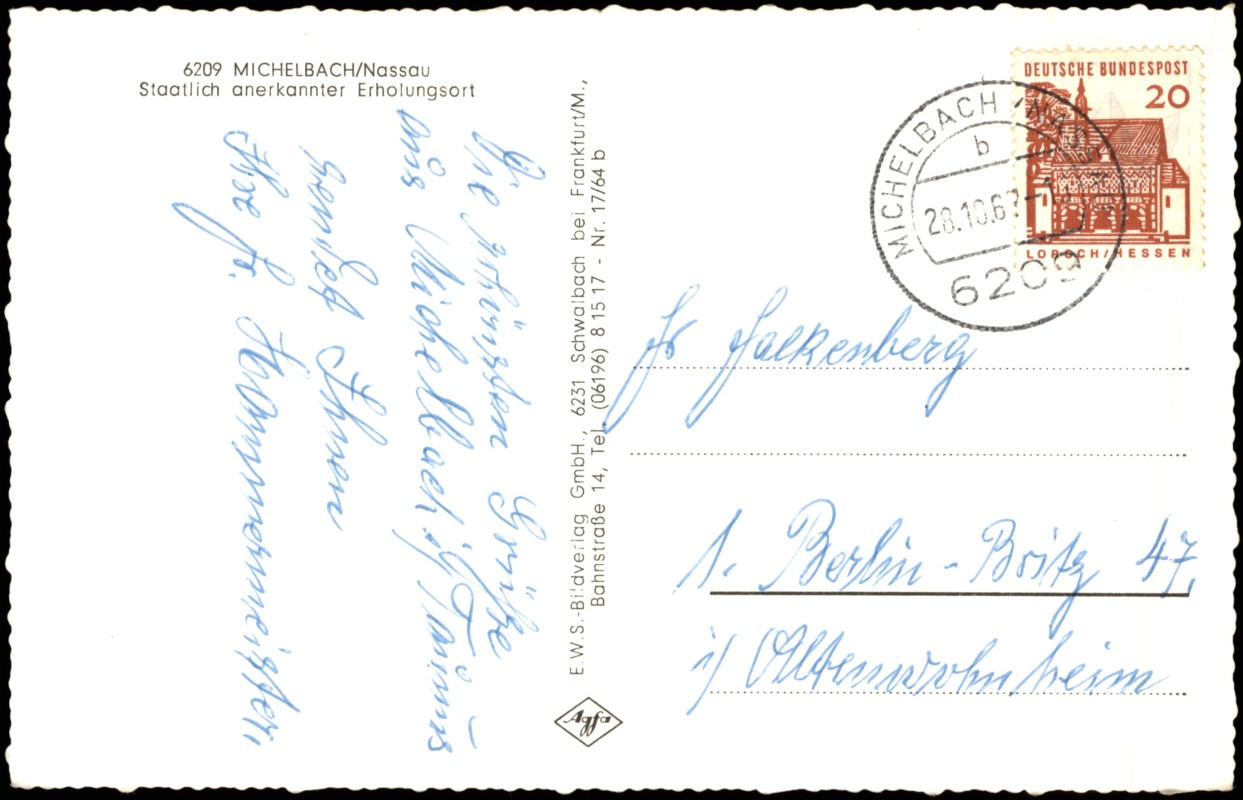 6209 MICHELBACH/Nassau
Staatlich anerkannter Erholungsort
Die schönsten Grüße
aus Michelbach i/Taunus
sendet Ihnen
Ihre fr. Hammermeister,
E.W.S.-Bildverlag GmbH., 6231 Schwalbach bei Frankfurt/M.,
Bahnstraße 14, Tel. (06196) 8 15 17 - Nr. 17/64 b
Agfa
DEUTSCHE BUNDESPOST
20
LORSCH/HESSEN
MICHELBACH /NASSAU
b
28.10.67-1
6209
Fr Falkenberg
1. Berlin-Britz 47,
i/ Altenwohnheim